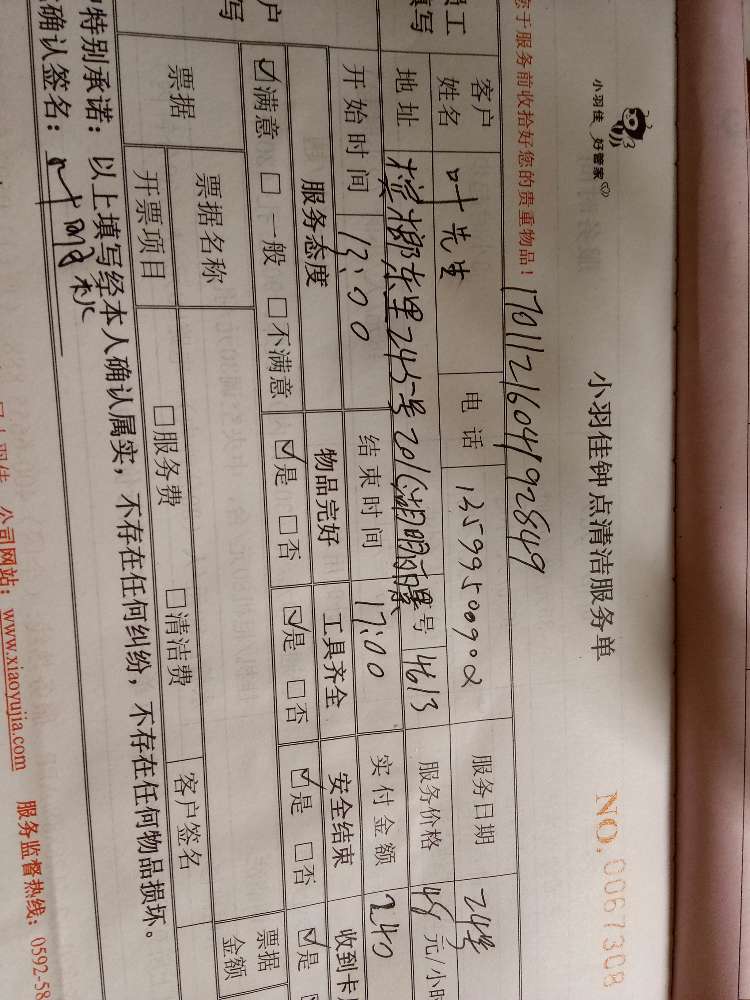 小羽佳 好管家
小羽佳钟点清洁服务单
NO. 0067308
您于服务前收拾好您的贵重物品！ 1701121604192849
员工
填写
客户姓名 叶先生 电话 13599500902 服务日期 24号
地址 槟榔东里245号201 号 4613 服务价格 48 元/小时
开始时间 13:00 结束时间 17:00 实付金额 240
户
写
服务态度 物品完好 工具齐全 安全结束 收到卡
☑满意 □一般 □不满意 ☑是 □否 ☑是 □否 ☑是 □否 ☑是
票据 票据名称 票据金额
开票项目 □服务费 □清洁费 客户签名
特别承诺：以上填写经本人确认属实，不存在任何纠纷，不存在任何物品损坏。
确认签名：叶
公司网站：www.xiaoyujia.com 服务监督热线：0592-58